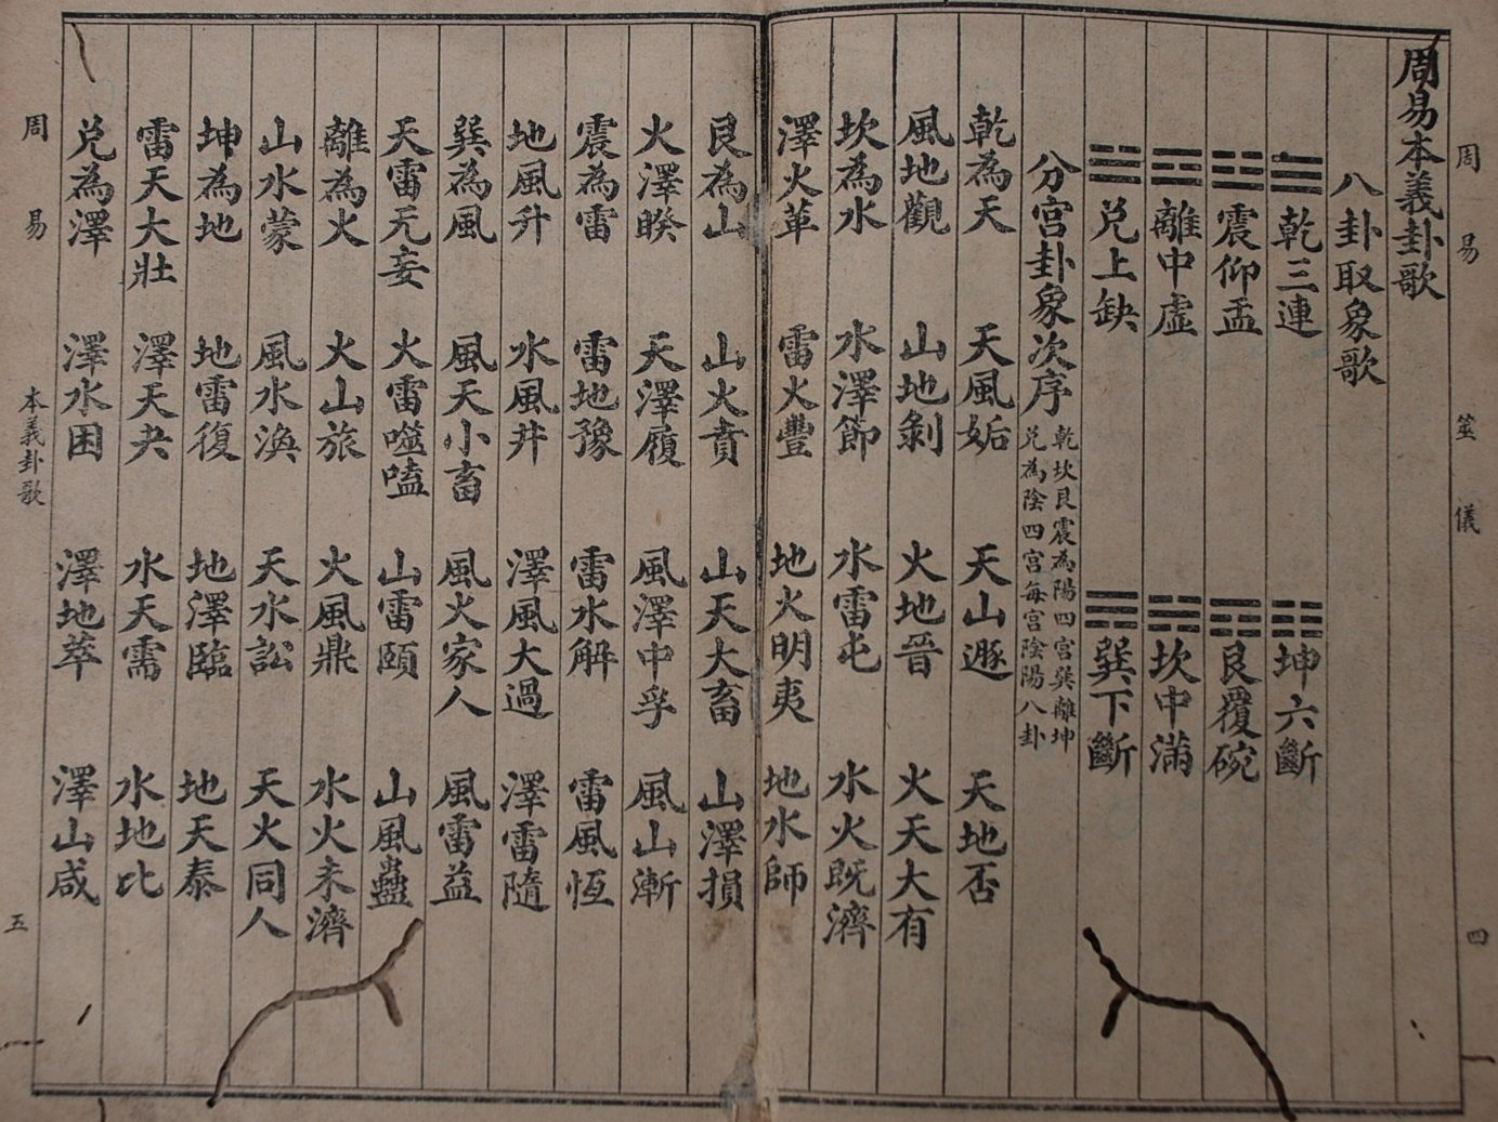 周易 筮儀 四
周易本義卦歌
八卦取象歌
☰乾三連 ☷坤六斷
☳震仰盂 ☶艮覆碗
☲離中虛 ☵坎中滿
☱兌上缺 ☴巽下斷
分宮卦象次序
乾坎艮震為陽四宮巽離坤
兌為陰四宮每宮陰陽八卦
乾為天 天風姤 天山遯 天地否
風地觀 山地剝 火地晉 火天大有
坎為水 水澤節 水雷屯 水火既濟
澤火革 雷火豐 地火明夷 地水師
艮為山 山火賁 山天大畜 山澤損
火澤睽 天澤履 風澤中孚 風山漸
震為雷 雷地豫 雷水解 雷風恆
地風升 水風井 澤風大過 澤雷隨
巽為風 風天小畜 風火家人 風雷益
天雷无妄 火雷噬嗑 山雷頤 山風蠱
離為火 火山旅 火風鼎 水火未濟
山水蒙 風水渙 天水訟 天火同人
坤為地 地雷復 地澤臨 地天泰
雷天大壯 澤天夬 水天需 水地比
兌為澤 澤水困 澤地萃 澤山咸
周易 本義卦歌 五